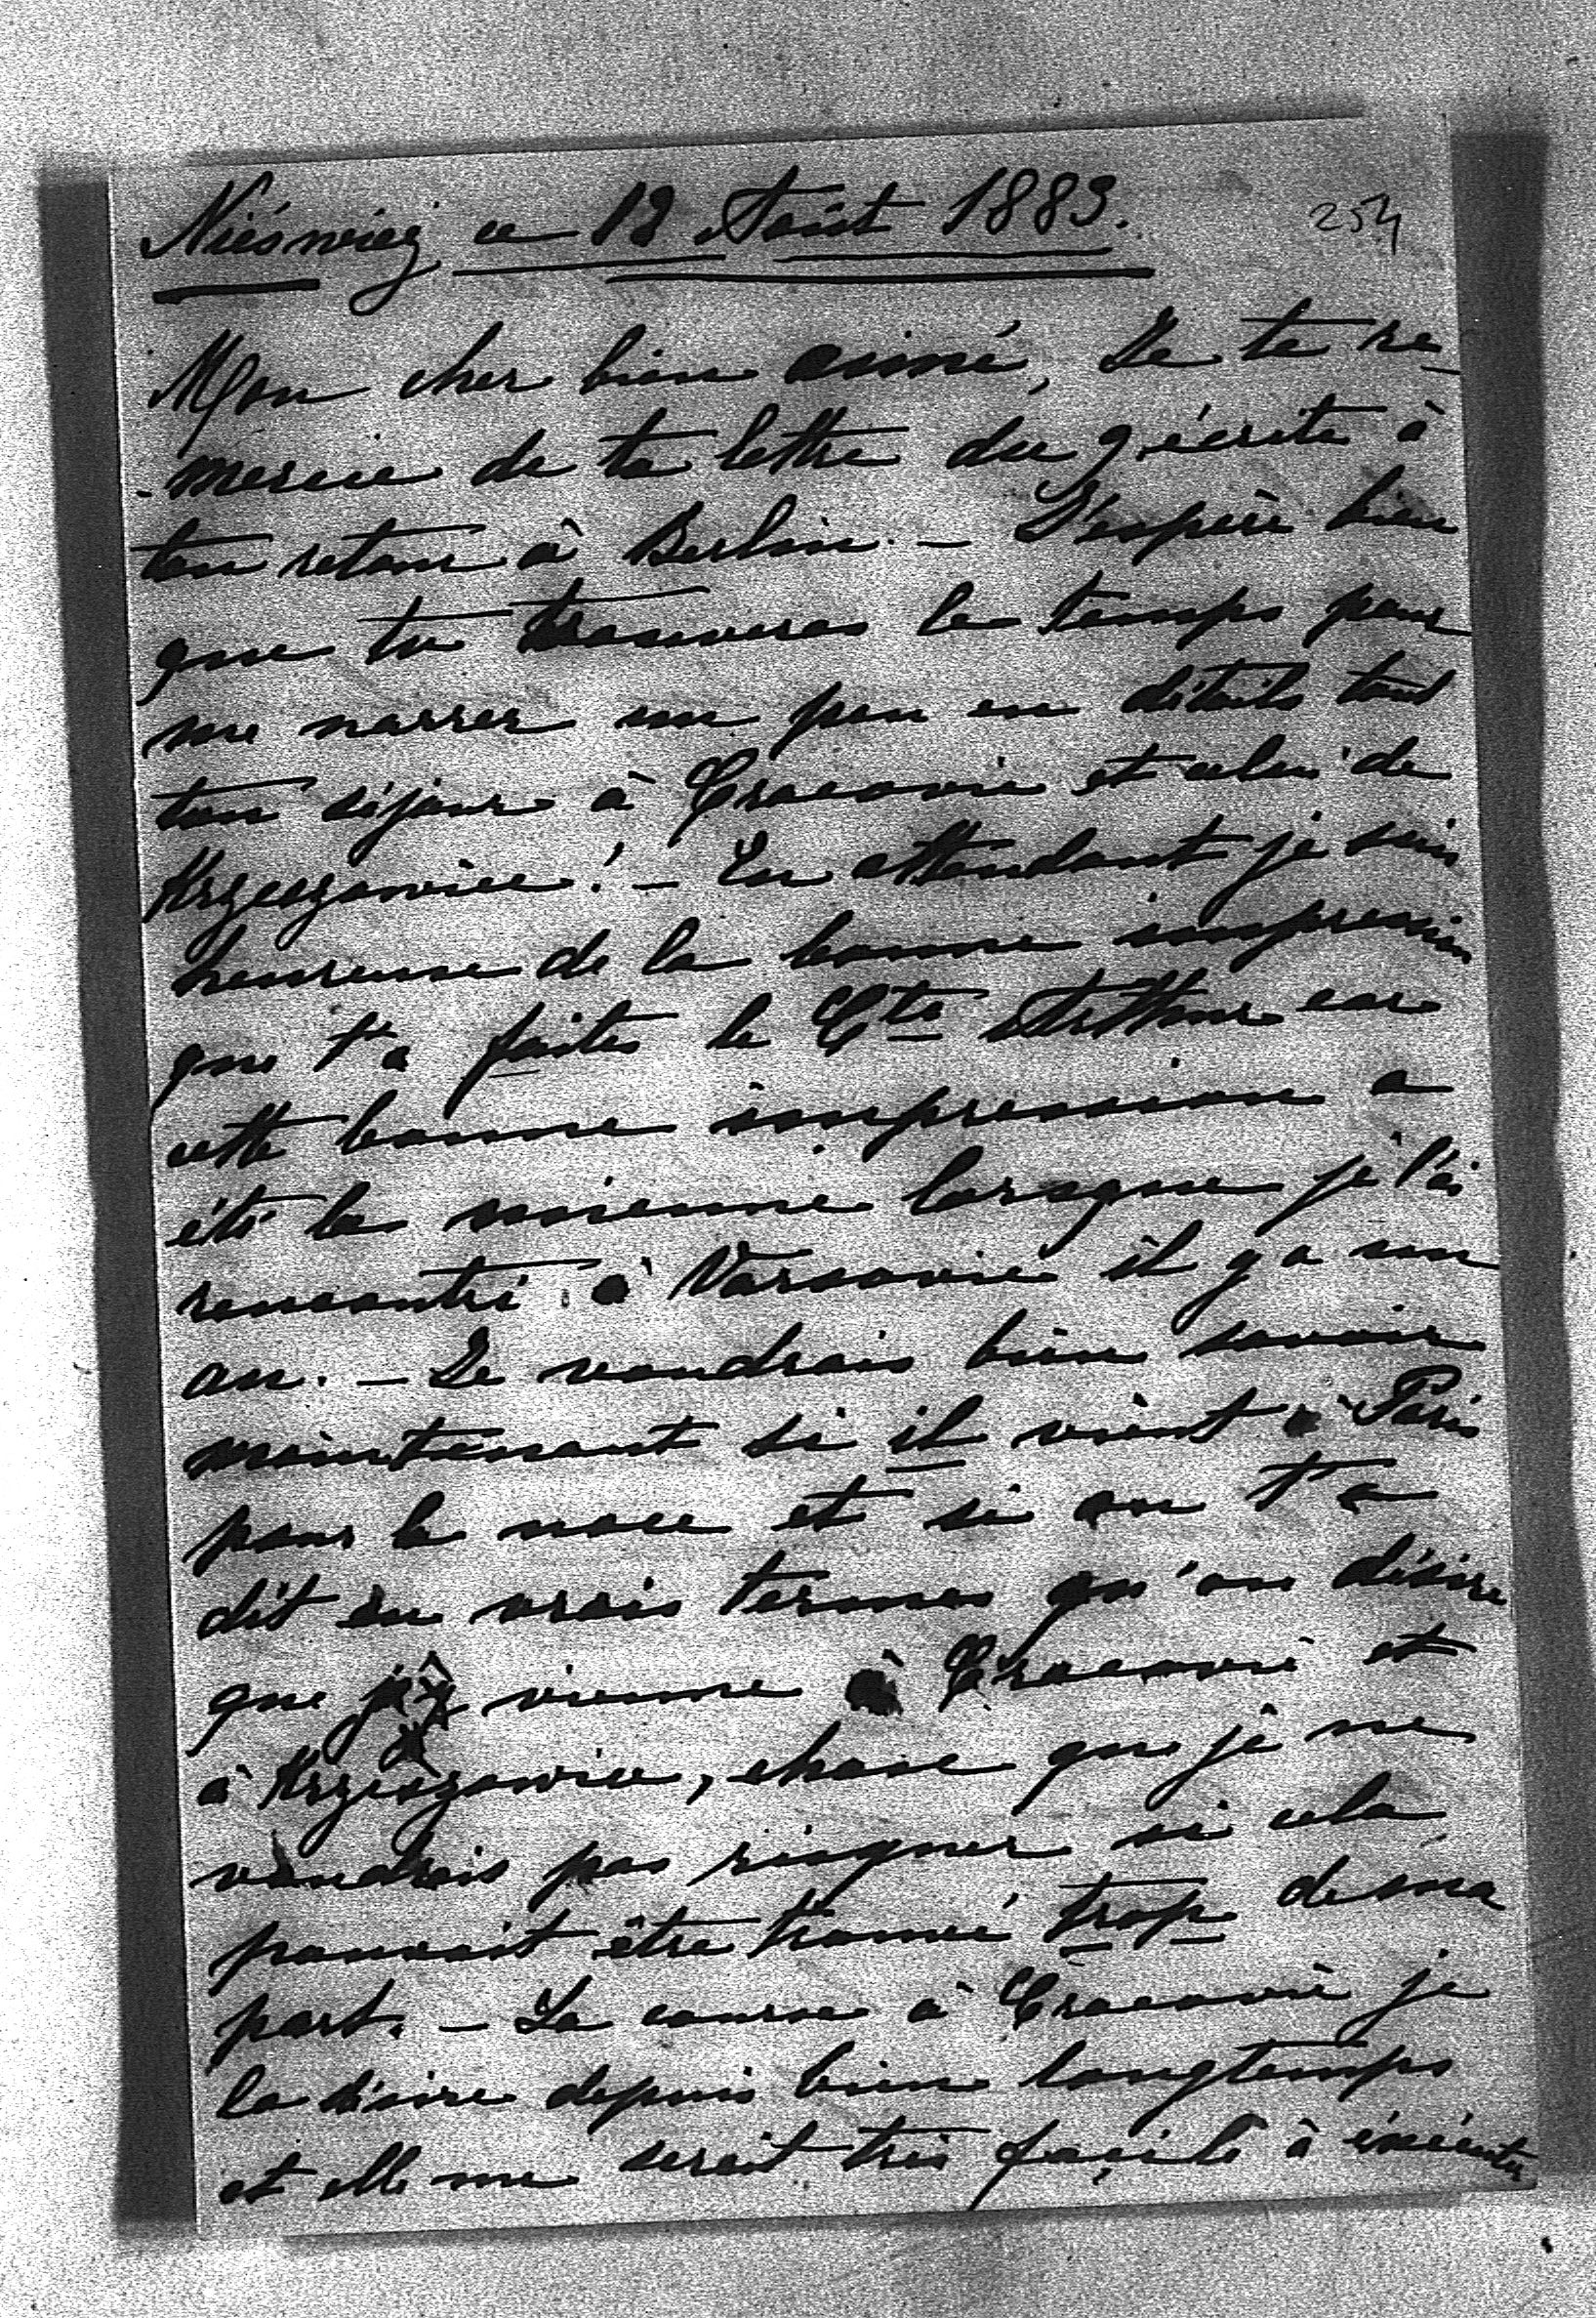 Nieświéz ce 12 Août 1883.
254
Mon cher bien aimé, Je te re-
-mercie de ta lettre du 9 écrite à
ton retour à Berlin. – J'espère bien
que tu trouveras le temps pour
me narrer un peu en détails tout
ton séjour à Cracovie et celui de
Krzeszowice! – En attendant je suis
heureuse de la bonne impression
que t'a faite le Cte Arthur car
cette bonne impression a
été la mienne lorsque je l'ai
rencontré à Varsovie il y a un
an. – Je voudrais bien savoir
maintenant si il vient à Paris
pour la noce et si on t'a
dit en vrais termes qu'on désire
que je vienne à Cracovie et
à Krzeszowice, chose que je ne
voudrais pas risquer si cela
pouvait être trouvé trop de ma
part. – La course à Cracovie je
la désire depuis bien longtemps
et elle me serait très façile à éxécuter